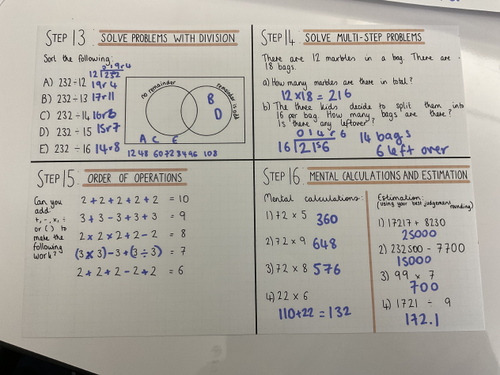 STEP 13 SOLVE PROBLEMS WITH DIVISION
Sort the following:
019r4
12)232
A) 232÷12 19r4
B) 232÷13 17r11
C) 232÷14 16r8
D) 232÷15 15r7
E) 232÷16 14r8
no remainder
remainder is odd
B
D
A C E
12 24 36 48 60 72 84 96 108
STEP 14 SOLVE MULTI-STEP PROBLEMS
There are 12 marbles in a bag. There are
18 bags.
a) How many marbles are there in total?
12 x 18 = 216
b) The three kids decide to split them into
16 per bag. How many bags are there?
Is there any leftover?
16
14 bags
6 left over
STEP 15 ORDER OF OPERATIONS
Can you
add
+, -, x, ÷
or ( ) to
make the
following
work?
2 + 2 + 2 + 2 + 2 = 10
3 + 3 - 3 + 3 + 3 = 9
2 x 2 x 2 + 2 - 2 = 8
(3 x 3) - 3 + (3 ÷ 3) = 7
2 + 2 + 2 - 2 + 2 = 6
STEP 16 MENTAL CALCULATIONS AND ESTIMATION
Mental calculations:
1) 72 x 5 360
2) 72 x 9 648
3) 72 x 8 576
4) 22 x 6
110+22 = 132
Estimation:
(using your best judgement rounding)
1) 17217 + 8230
25000
2) 232500 - 7700
15000
3) 99 x 7
700
4) 1721 ÷ 9
172.1